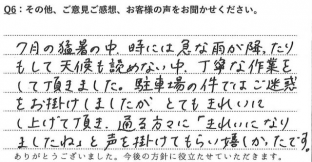 Q6：その他、ご意見ご感想、お客様の声をお聞かせください。
7月の猛暑の中、時には急な雨が降ったり
もして天候も読めない中、丁寧な作業を
して頂きました。駐車場の件ではご迷惑
をお掛けしましたが、とてもきれいに
仕上げて頂き、通る方々に「きれいになり
ましたね」と声を掛けてもらい嬉しかったです。
ありがとうございました。今後の方針に役立たせていただきます。